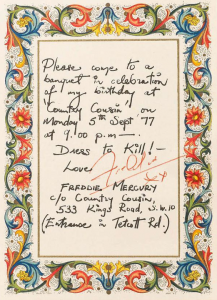 Please come to a
banquet in celebration
of my birthday at
'Country Cousin' on
Monday 5th Sept '77
at 9.00 p.m —
Dress to Kill! —
Love
FREDDIE MERCURY
c/o Country Cousin,
533 Kings Road, S.W.10
(Entrance in Tetcott Rd.)